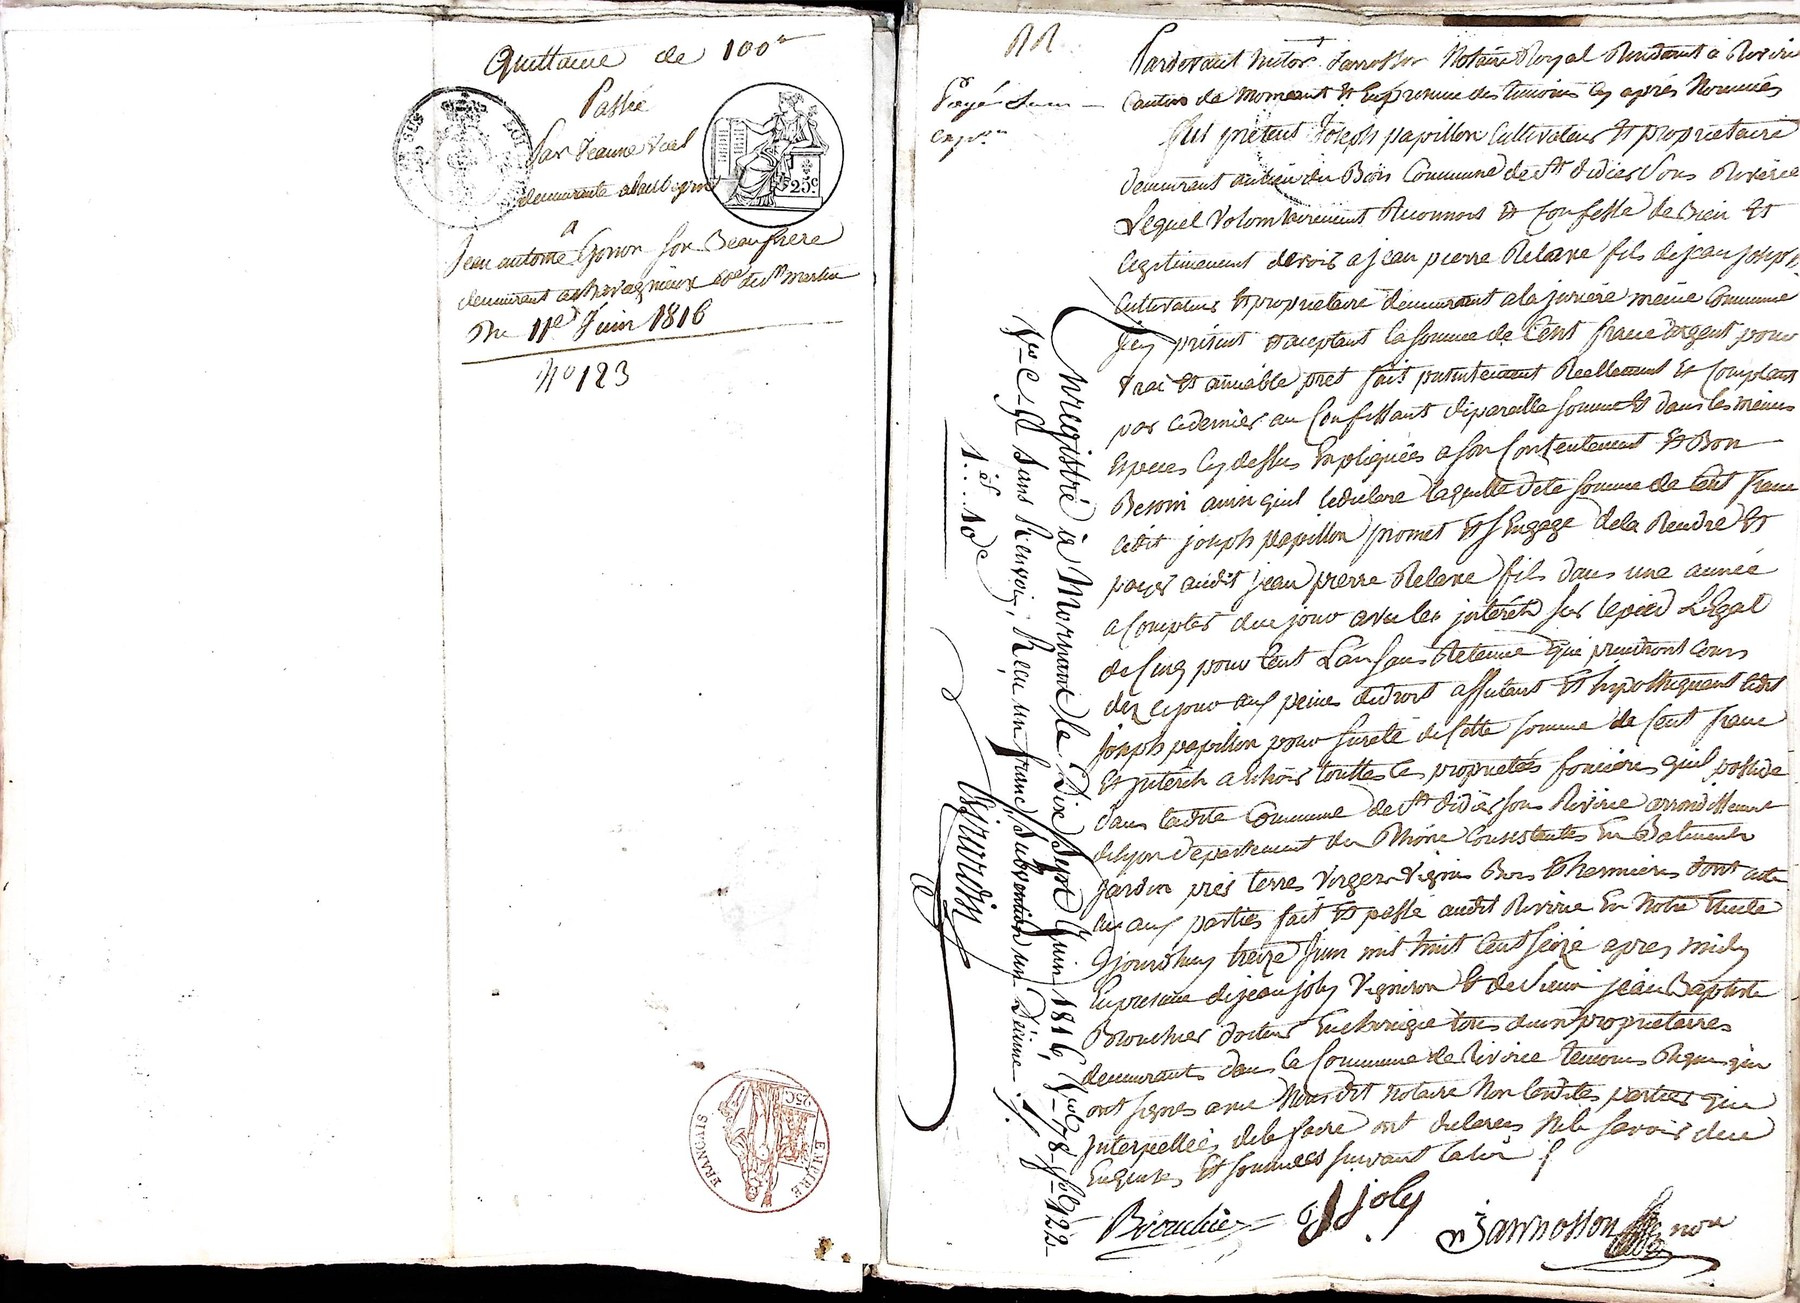 Quittance de 100
Passée
Par Jeanne
demeurante
à
Jean antoine Gonon son Beaufrere
demeurant a Chavagnieux Cne de St martin
Du 11e Juin 1816
No 123
25c
EMPIRE FRANCAIS
25C
Pardevant Victor Jannosson Notaire Royal Residant à Riverie
Canton de Mornant Et En presence des temoins cy après Nommés
fut présent Joseph papillon Cultivateur Et proprietaire
demeurant au lieu du Bois Commune de St didier Sous Riverie
Lequel Volontairement Reconnois Et Confesse de Bien Et
legitimement devoir a jean pierre Relave fils de jean joseph
Cultivateur Et proprietaire demeurant a la juriere même Commune
Icy présent Et aceptant la Somme de Cent franc d'argent pour
vrai Et amiable pret fait presentement Réellement Et Comptant
par ce dernier au Confessant de pareille somme Et dans les mêmes
Especes Cy dessus Expliquées a son Contentement Et Bon
Besoin ainsi qu'il le déclare laquelle dite somme de Cent franc
ledit joseph papillon promet Et s'Engage de la Rendre Et
payer audit jean pierre Relave fils dans une année
a Compter de ce jour avec les intérêts sur le pied Légal
de Cinq pour Cent L'an sans Retenue qui prendront Cours
dez ce jour aux peines de droit affectant Et hipothequant ledit
joseph papillon pour sureté de Cette somme de Cent franc
Et intérêts a Echoir touttes les proprietés foncières qu'il possede
dans ladite Commune de St didier sous Riverie arrondissement
de lyon departement du Rhône Consistantes En Batiments
Jardin prés terres Vergers Vignes Bois Et hermières dont acte
lu aux parties fait Et passé audit Riverie En Notre Etude
Ajourdhuy treize Juin mil huit Cent Seize apres midy
En presence de jean joly Vigneron Et de Sieur jean Baptiste
Brouchier docteur En chirurgie tous deux proprietaires
demeurants dans la Commune de Riverie temoins Requis qui
ont signés avec Nous dit Notaire Non lesdites parties qui
Interpellées de le faire ont declarées Ne le Savoir de ce
Enquises Et sommées suivant la loi
Brouchier J joly Jannosson nore
Payé
Enregistré à Mornant le Dix Sept Juin 1816 Vol. 78 fol 122
Vo C 9 sans Renvoi, Reçu un franc, Subvention un Décime
1. 10c
Girardin